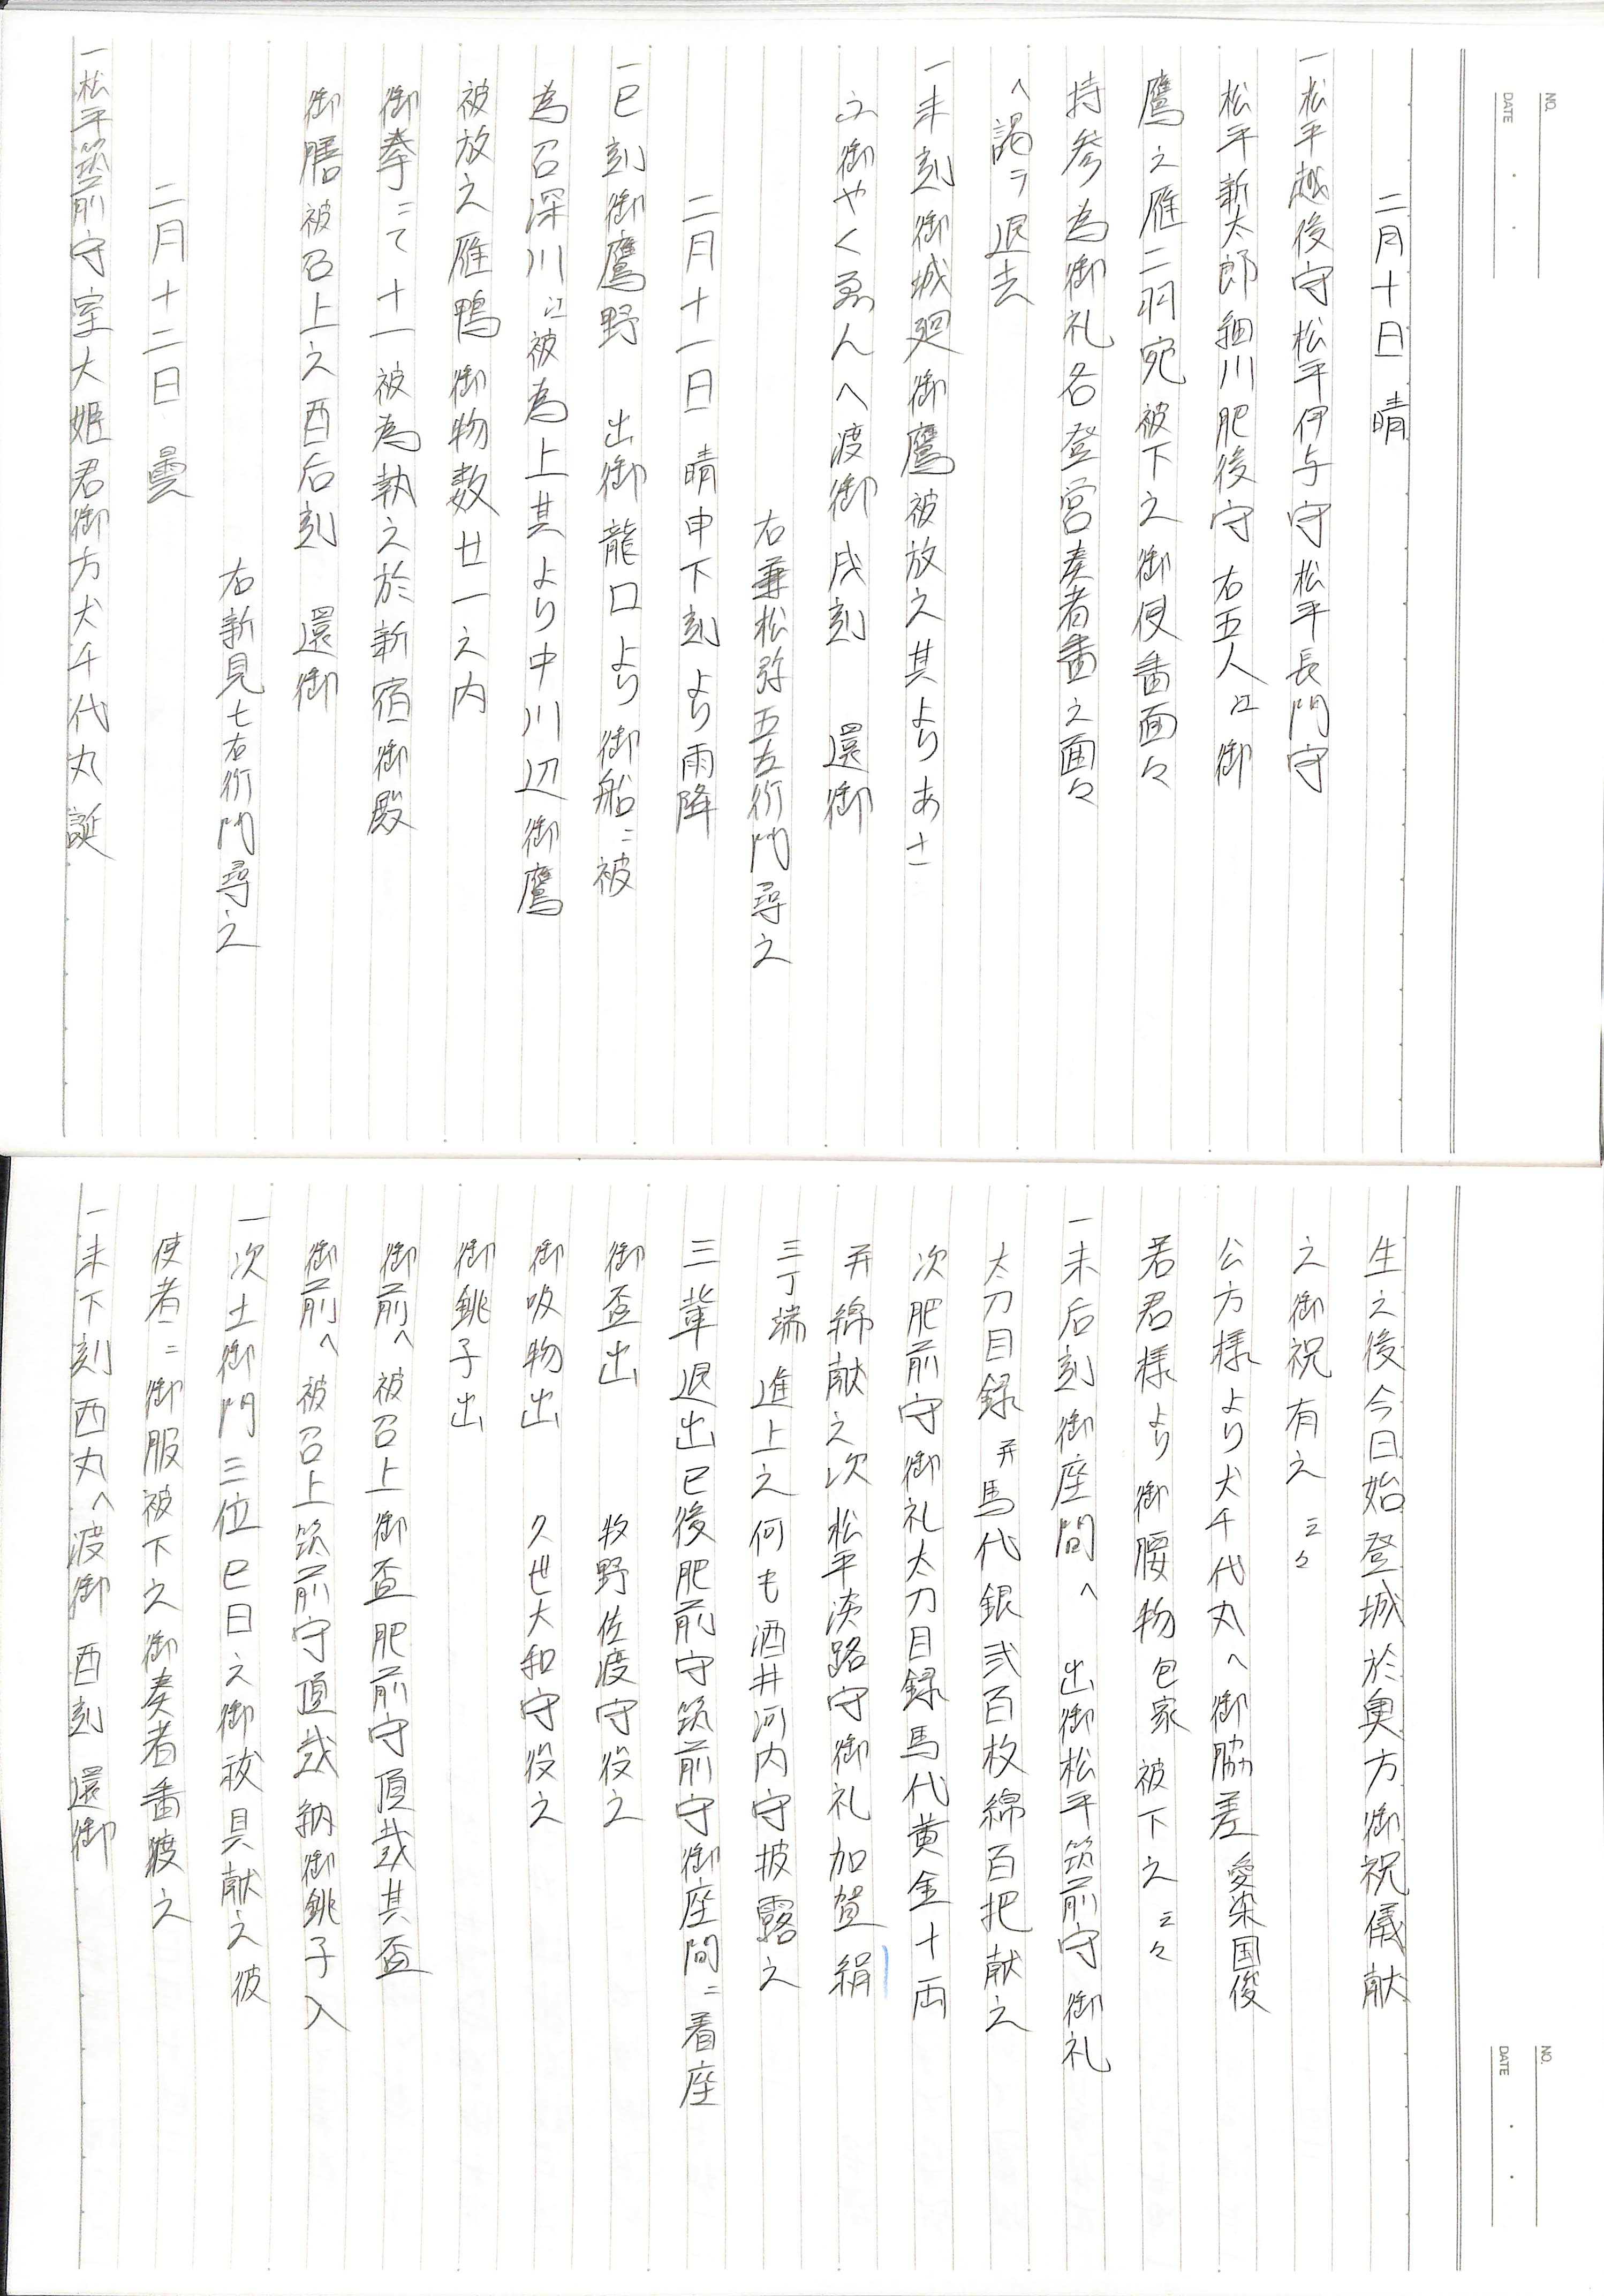 NO.
DATE
二月十日 晴
一松平越後守松平伊与守松平長門守
松平新太郎細川肥後守右五人江御
鷹之雁二羽宛被下之御使番面々
持参為御礼各登営奏者番之面々
へ謁ヲ退去
一未刻御城廻御鷹被放之其よりあさ
ふ御やくゑんへ渡御戌刻 還御
右兼松弥五左衛門尋之
二月十一日 晴申下刻より雨降
一巳刻御鷹野 出御龍口より御船ニ被
為召深川江被為上其より中川辺御鷹
被放之雁鴨御物数廿一之内
御拳ニて十一被為執之於新宿御殿
御膳被召上之酉后刻 還御
右新見七右衛門尋之
二月十二日 曇
一松平筑前守室大姫君御方犬千代丸誕
NO.
DATE
生之後今日始登城於奥方御祝儀献
之御祝有之 云々
公方様より犬千代丸へ御脇差 愛染国俊
若君様より御腰物 包家 被下之 云々
一未后刻御座間へ 出御松平筑前守御礼
太刀目録并馬代銀弐百枚綿百把献之
次肥前守御礼太刀目録馬代黄金十両
并綿献之次松平淡路守御礼加賀絹
三丁端進上之何も酒井河内守披露之
三輩退出已後肥前守筑前守御座間ニ着座
御盃出 牧野佐渡守役之
御吸物出 久世大和守役之
御銚子出
御前へ被召上御盃肥前守頂戴其盃
御前へ被召上筑前守頂戴納御銚子入
一次土御門三位巳日之御祓具献之彼
使者ニ御服被下之御奏者番渡之
一未下刻西丸へ渡御酉刻 還御